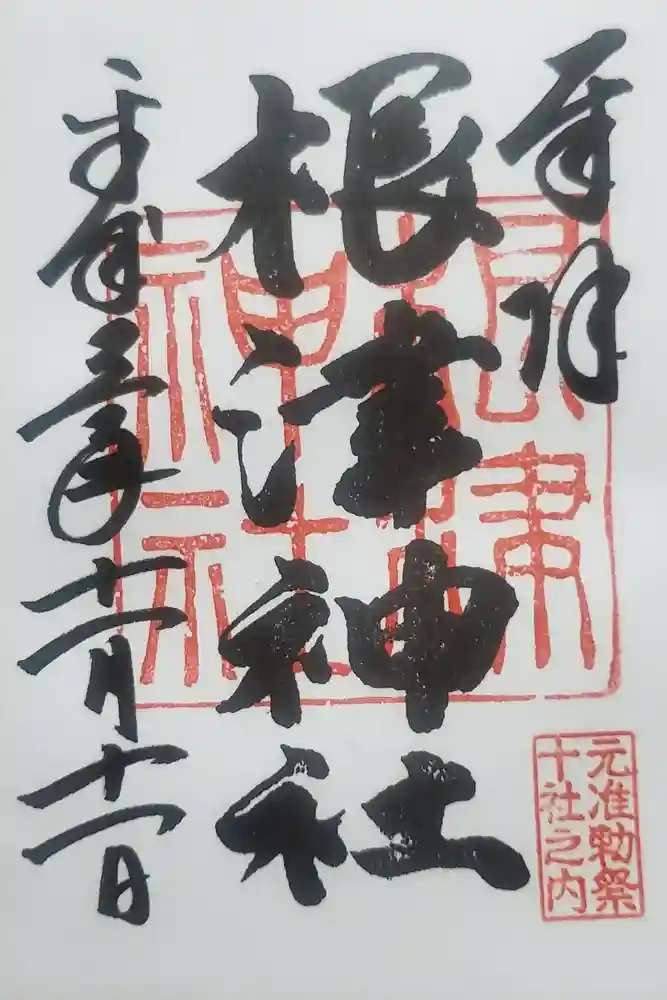 奉拝
根津神社
令和三年十一月十一日
根津
神社
元准勅祭
十社之内